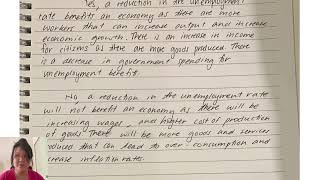 Yes, a reduction in the unemployment
rate benefits an economy as there are more
workers that can increase output and increase
economic growth. There is an increase in income
for citizens as there are more goods produced. There
is a decrease in government spending for
unemployment benefit.
No a reduction in the unemployment rate
will not benefit an economy as there will be
increasing wages, and higher cost of production
of goods. There will be more goods and services
produces that can lead to over-consumption and
crease inflation rates.